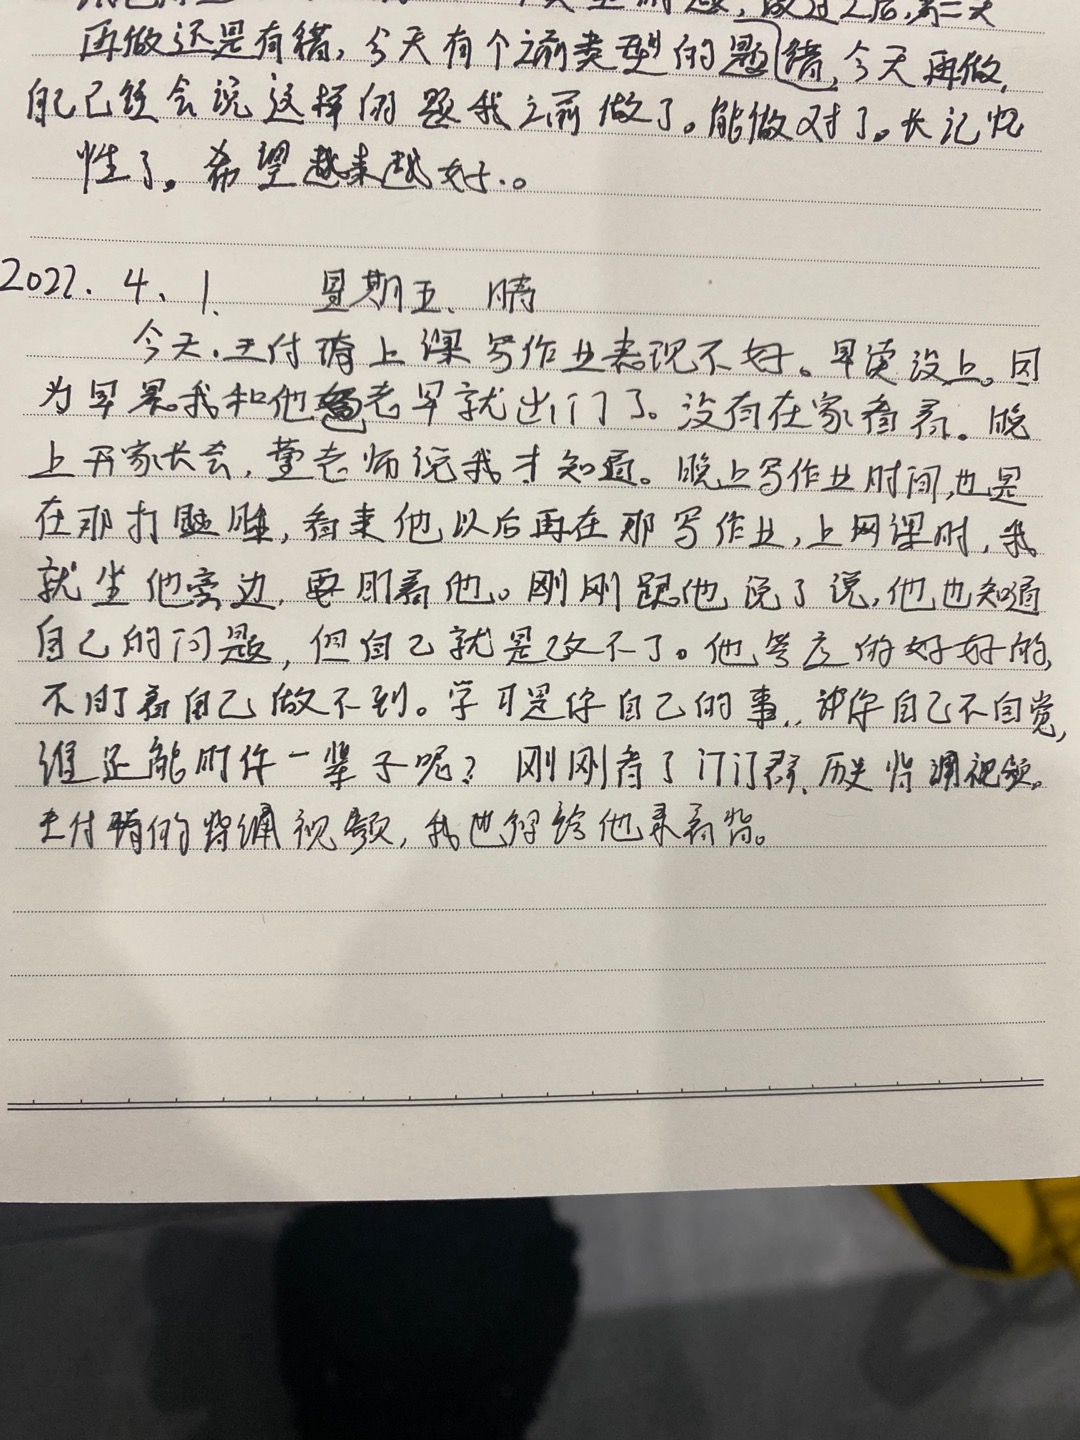 题,做过之后,第二天
再做还是有错,今天有个之前类型的题错,今天再做,
自己已经会说这样的题我之前做了。能做对了。长记忆
性了。希望越来越好。。
2022.4.1. 星期五、晴
今天,王付 上课写作业表现不好。早读没上。因
为早晨我和他爸老早就出门了。没有在家看着。晚
上开家长会,董老师说我才知道。晚上写作业时间,也是
在那打瞌睡,看来他以后再在那写作业,上网课时,我
就坐他旁边,要盯着他。刚刚跟他说了说,他也知道
自己的问题,但自己就是改不了。他答应的好好的,
不盯着自己做不到。学习是你自己的事,,你自己不自觉,
谁还能盯你一辈子呢?刚刚看了钉钉群、历史背诵视频。
王付 的背诵视频,我也得给他录着背。